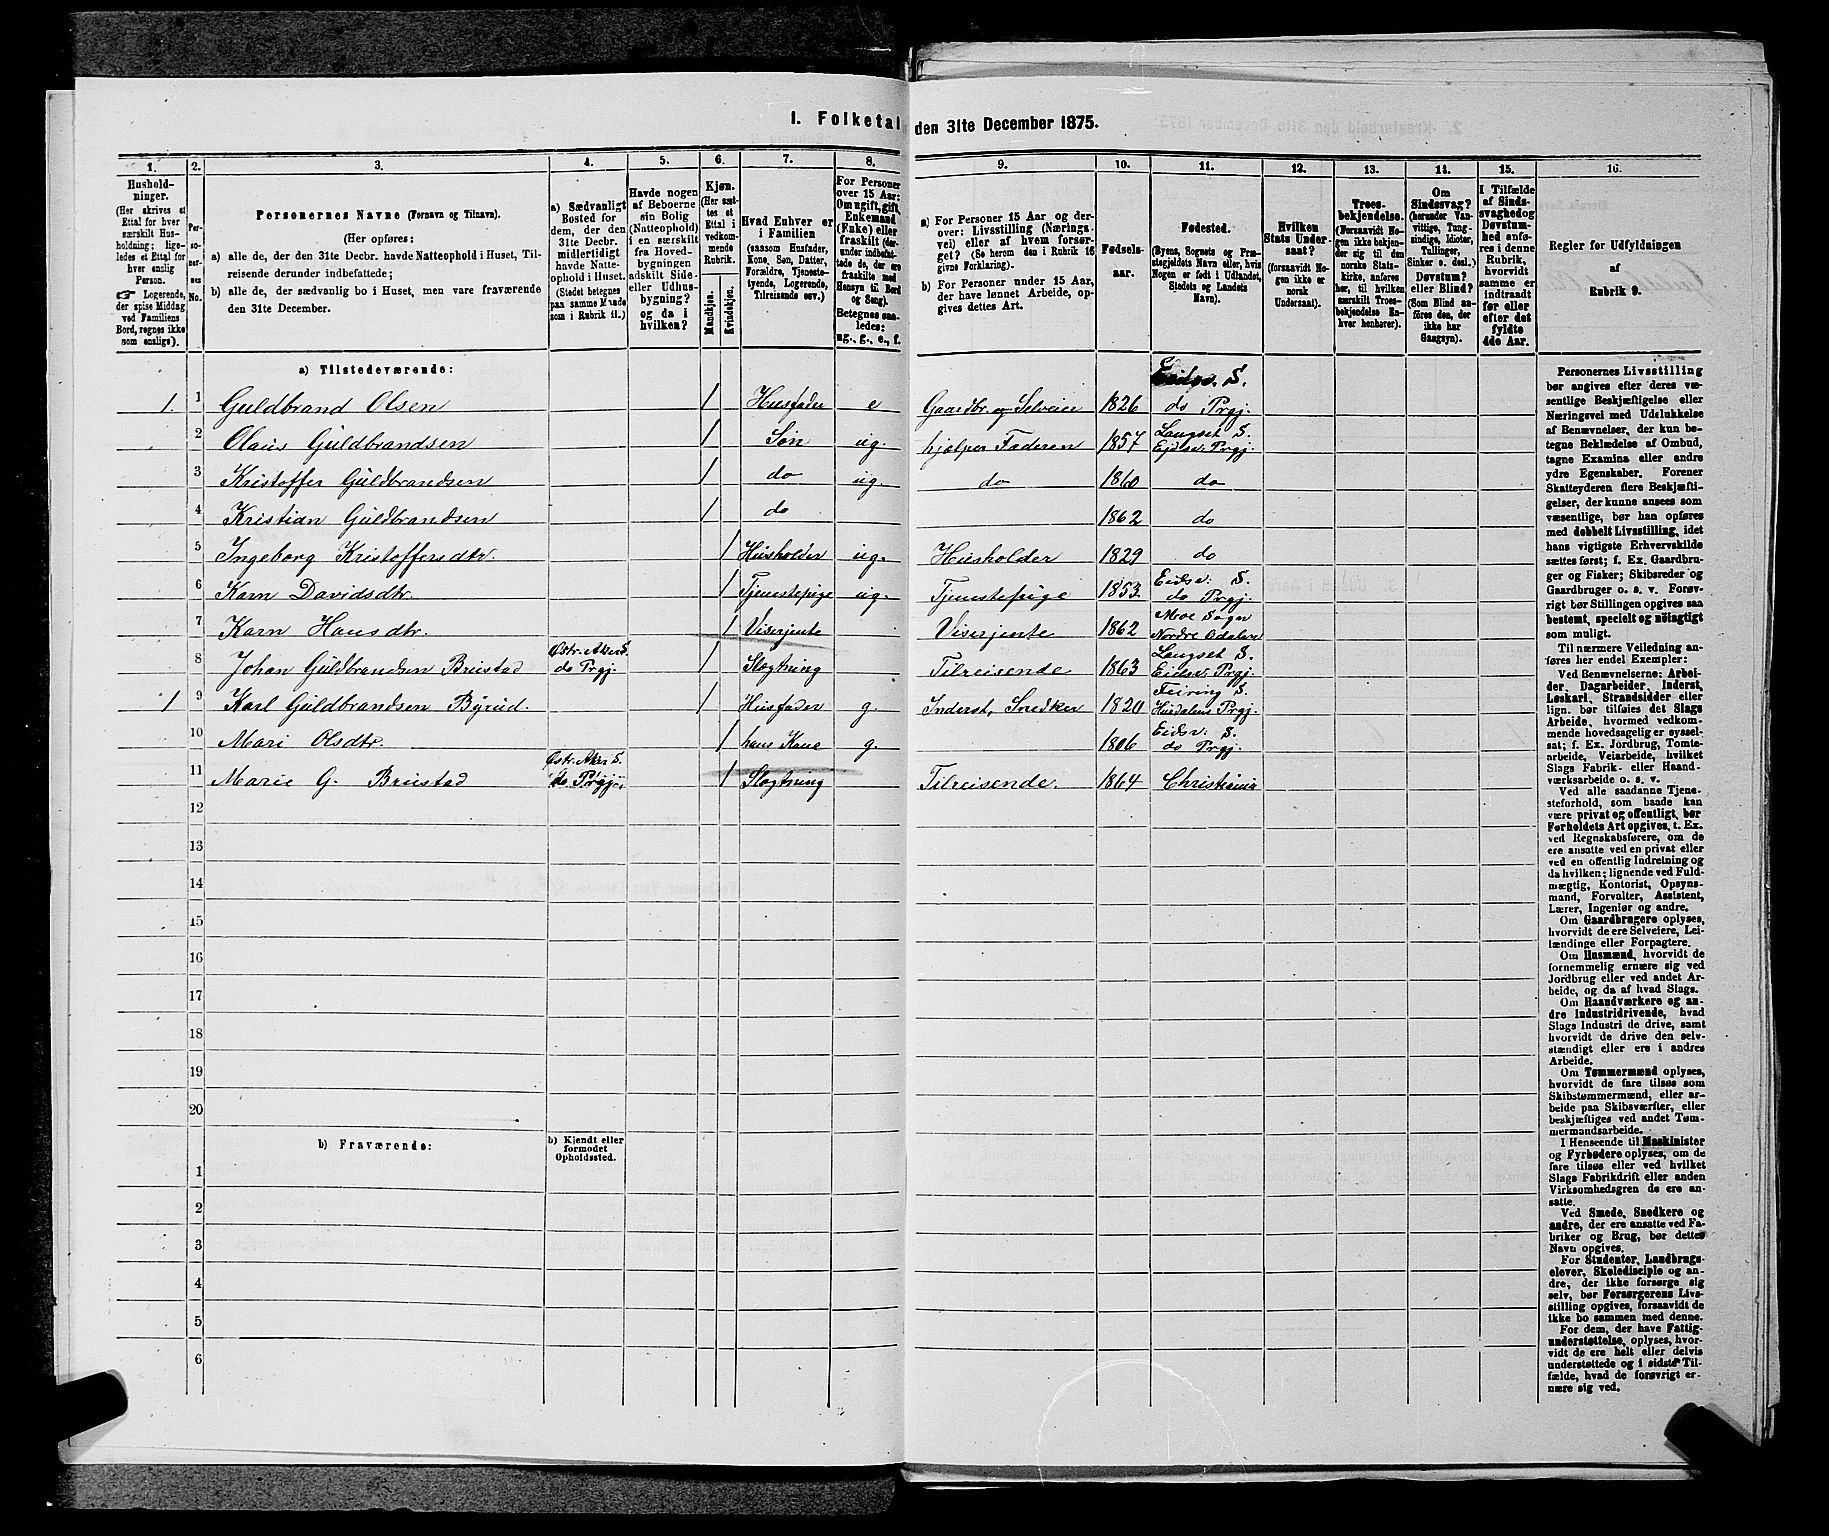 I. Folketal den 31te December 1875.
1. 2. 3. 4. 5. 6. 7. 8. 9. 10. 11. 12. 13. 14. 15. 16.
Hushold-
ninger.
(Her skrives et
Ettal for hver
særskilt Hus-
holdning; lige-
ledes et Ettal for
hver enslig
Person.
☞ Logerende,
der spise Middag
ved Familiens
Bord, regnes ikke
som enslige).
Per-
so-
ner-
nes
No.
Personernes Navne (Fornavn og Tilnavn).
(Her opføres:
a) alle de, der den 31te Decbr. havde Natteophold i Huset, Til-
reisende derunder indbefattede;
b) alle de, der sædvanlig bo i Huset, men vare fraværende
den 31te December.
a) Sædvanligt
Bosted for
dem, der den
31te Decbr.
midlertidigt
havde Natte-
ophold i Huset.
(Stedet betegnes
paa samme Maade
som i Rubrik 11.)
Havde nogen
af Beboerne
sin Bolig
(Natteophold)
i en særskilt
fra Hoved-
bygningen
adskilt Side-
eller Udhus-
bygning?
og da i
hvilken?
Kjøn.
(Her sæt-
tes et
Ettal i
vedkom-
mende
Rubrik.
Mandkjøn.
Kvindekjøn.
Hvad Enhver er
i Familien
(saasom Husfader,
Kone, Søn, Datter,
Forældre, Tjeneste-
tyende, Logerende,
Tilreisende osv.)
For Personer
over 15 Aar:
Om ugift, gift,
Enkemand
(Enke) eller
fraskilt (der-
under indbefat-
tede de, der ere
fraskilte med
Hensyn til Bord
og Seng).
Betegnes saa-
ledes:
ug., g., e., f.
a) For Personer 15 Aar og der-
over: Livsstilling (Nærings-
vei) eller af hvem forsør-
get? (Se herom den i Rubrik 16
givne Forklaring).
b) For Personer under 15 Aar,
der have lønnet Arbeide, op-
gives dettes Art.
Fødsels-
aar.
Fødested.
(Byens, Sognets og Præ-
stegjeldets Navn eller, hvis
Nogen er født i Udlandet,
Stedets og Landets
Navn).
Hvilken
Stats Under-
saat?
(forsaavidt No-
gen ikke er
norsk
Undersaat).
Troes-
bekjendelse.
(Forsaavidt No-
gen ikke bekjen-
der sig til den
norske Stats-
kirke, anføres
her, til hvilken
særskilt Troes-
bekjendelse En-
hver henhører).
Om
Sindssvag?
(herunder Van-
vittige, Tung-
sindige, Idioter,
Tullinger,
Sinker o. desl.)
Døvstum?
eller Blind?
(Som Blind an-
føres den, der
ikke har
Gangsyn).
I Tilfælde
af Sinds-
svaghed og
Døvstum-
hed anfø-
res i denne
Rubrik,
hvorvidt
samme er
indtraadt
før eller
efter det
fyldte
4de Aar.
Regler for Udfyldningen
af
Rubrik 9.
a) Tilstedeværende:
Eidsv. S.
1. 1 Guldbrand Olsen 1 Husfader e Gaardbr. og Selveier 1826 do Prgj.
2 Olaus Guldbrandsen 1 Søn ug. hjælper Faderen 1857 Langset S. Eidsv. Prgj.
3 Kristoffer Guldbrandsen 1 do ug. do 1860 do
4 Kristian Guldbrandsen 1 do 1862 do
5 Ingeborg Kristoffersdtr. 1 Husholder ug. Husholder 1829 do
6 Karn Davidsdtr. 1 Tjenestepige ug. Tjenestepige 1853. Eidsv. S. do Prgj.
7 Karn Hansdtr. 1 Viserjente Viserjente 1862 Moe Sogn Nordre Odalen
8 Johan Guldbrandsen Brustad Østr. Aker S. do Prgj. 1 Slægtning Tilreisende 1863 Langset S. Eidsv. Prgj.
1 9 Karl Guldbrandsen Byrud. 1 Husfader g. Inderst, Snedker 1820 Feiring S. Hurdalens Prgj.
10 Mari Olsdtr. 1 hans Kone g. 1806 Eidsv. S. do Prgj.
11 Marie G. Brustad Østr. Aker S. do Prgj. 1 Slægtning Tilreisende. 1864 Christiania
12
13
14
15
16
17
18
19
20
b) Fraværende:
b) Kjendt eller
formodet
Opholdssted.
1
2
3
4
5
6
Personernes Livsstilling
bør angives efter deres væ-
sentlige Beskjæftigelse eller
Næringsvei med Udelukkelse
af Benævnelser, der kun be-
tegne Beklædelse af Ombud,
tagne Examina eller andre
ydre Egenskaber. Forener
Skatteyderen flere Beskjæfti-
gelser, der kunne ansees som
væsentlige, bør han opføres
med dobbelt Livsstilling, idet
hans vigtigste Erhvervskilde
sættes først; f. Ex. Gaardbru-
ger og Fisker; Skibsreder og
Gaardbruger o. s. v. Forøv-
rigt bør Stillingen opgives saa
bestemt, specielt og nøiagtigt
som muligt.
Til nærmere Veiledning an-
føres her endel Exempler:
Ved Benævnelserne: Arbei-
der, Dagarbeider, Inderst,
Løskarl, Strandsidder eller
lign. bør tilføies det Slags
Arbeide, hvormed vedkom-
mende hovedsagelig er syssel-
sat; f. Ex. Jordbrug, Tomte-
arbeide, Veiarbeide, hvilket
Slags Fabrik- eller Haand-
værksarbeide o. s. v.
Ved alle saadanne Tjene-
steforhold, som baade kan
være privat og offentligt, bør
Forholdets Art opgives, t. Ex.
ved Regnskabsførere, om de
ere ansatte ved en privat eller
ved en offentlig Indretning og
da hvilken; lignende ved Fuld-
mægtig, Kontorist, Opsyns-
mand, Forvalter, Assistent,
Lærer, Ingeniør og andre.
Om Gaardbrugere oplyses,
hvorvidt de ere Selveiere, Lei-
lændinge eller Forpagtere.
Om Husmænd, hvorvidt de
fornemmelig ernære sig ved
Jordbrug eller ved andet Ar-
beide, og da af hvad Slags.
Om Haandværkere og an-
dre Industridrivende, hvad
Slags Industri de drive, samt
hvorvidt de drive den selv-
stændigt eller ere i andres
Arbeide.
Om Tømmermænd oplyses,
hvorvidt de fare tilsøs som
Skibstømmermænd, eller ar-
beide paa Skibsværfter, eller
beskjæftiges ved andet Tøm-
mermandsarbeide.
I Henseende til Maskinister
og Fyrbødere oplyses, om de
fare tilsøs eller ved hvilket
Slags Fabrikdrift eller anden
Virksomhedsgren de ere an-
satte.
Ved Smede, Snedkere og
andre, der ere ansatte ved Fa-
briker og Brug, bør dettes
Navn opgives.
For Studenter, Landbrugs-
elever, Skoledisciple og an-
dre, der ikke forsørge sig
selv, bør Forsørgerens Livs-
stilling opgives, forsaavidt de
ikke bo sammen med denne.
For dem, der have Fattig-
understøttelse, oplyses, hvor-
vidt de ere helt eller delvis
understøttede og i sidste Til-
fælde, hvad de forøvrigt er-
nære sig ved.